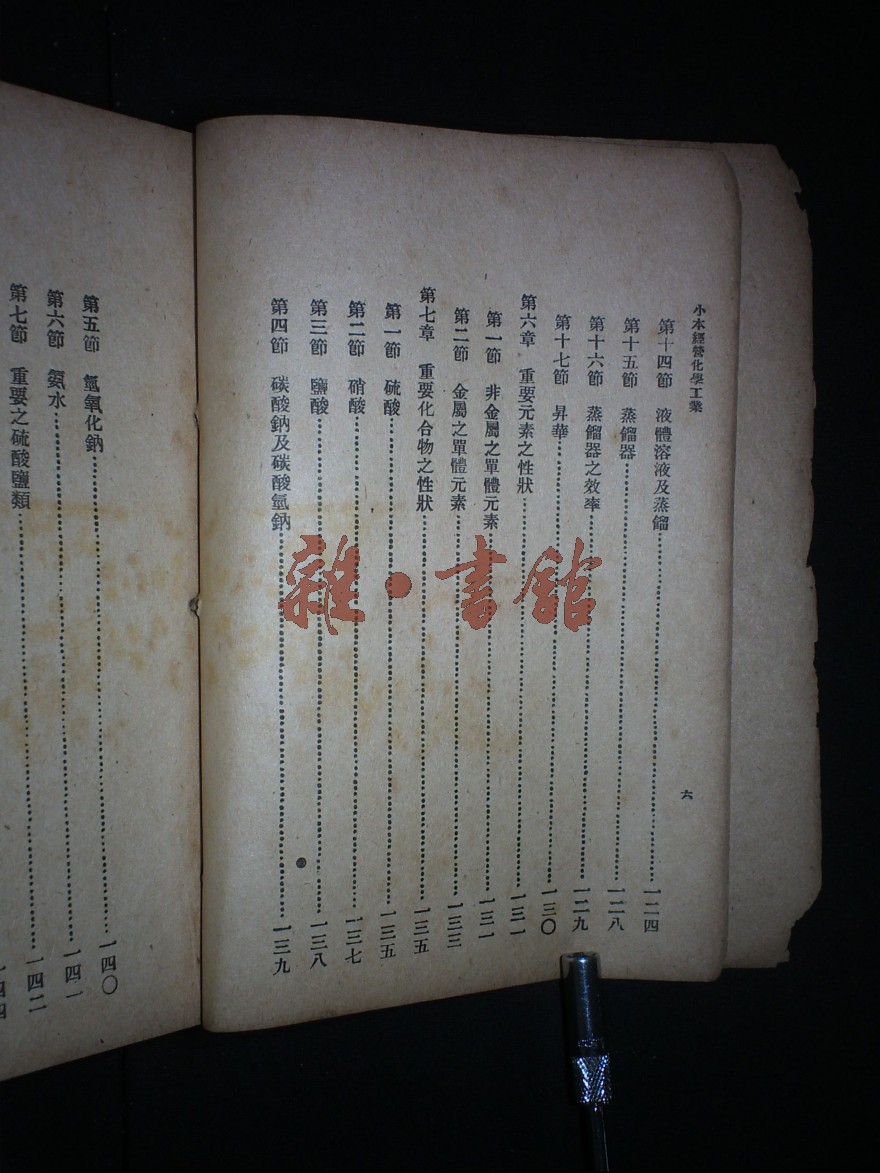 小本經營化學工業
六
第十四節 液體溶液及蒸餾……一二四
第十五節 蒸餾器……一二八
第十六節 蒸餾器之效率……一二九
第十七節 昇華……一三〇
第六章 重要元素之性狀……一三一
第一節 非金屬之單體元素……一三一
第二節 金屬之單體元素……一三三
第七章 重要化合物之性狀……一三五
第一節 硫酸……一三五
第二節 硝酸……一三七
第三節 鹽酸……一三八
第四節 碳酸鈉及碳酸氫鈉……一三九
第五節 氫氧化鈉……一四〇
第六節 氨水……一四一
第七節 重要之硫酸鹽類……一四二
一四四
雜·書館